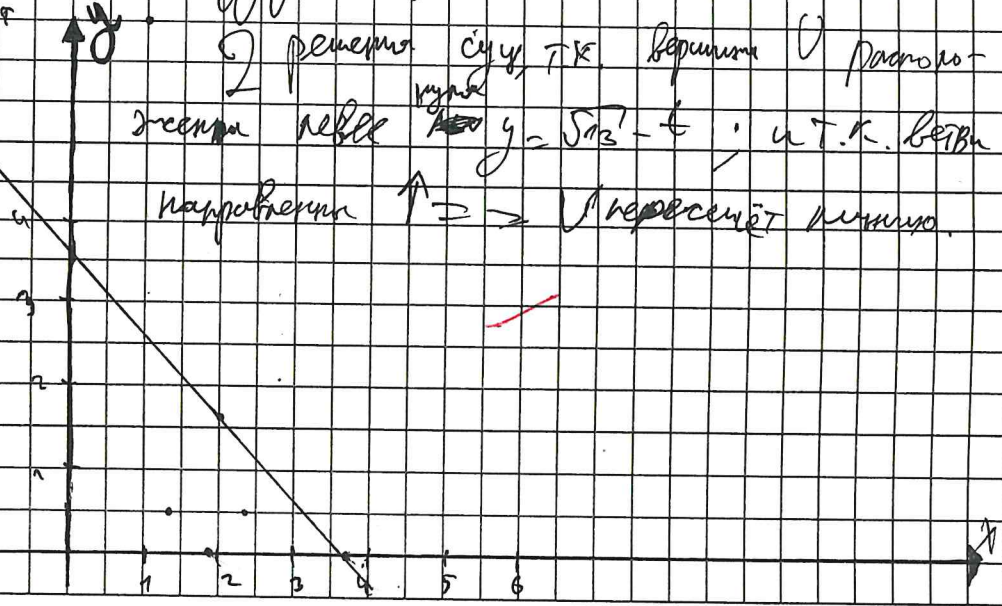 y
2 решения сущ, т.к. вершина U располо-
нуля
жена левее y = √13 - t ; и т.к. ветви
направлены ↑ => U пересечёт линию.
4
3
2
1
1 2 3 4 5 6
x